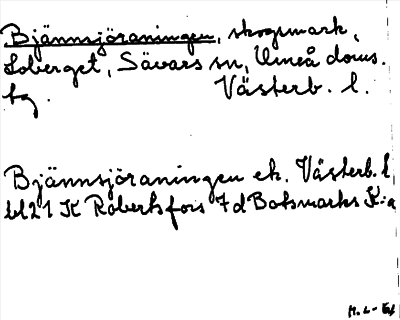 Bjännsjöraningen, skogsmark,
Loberget, Sävars sn, Umeå doms.
tg. Västerb. l.
Bjännsjöraningen ek. Västerb. l
bl 21 K Robertsfors 7d Botsmarks K:a